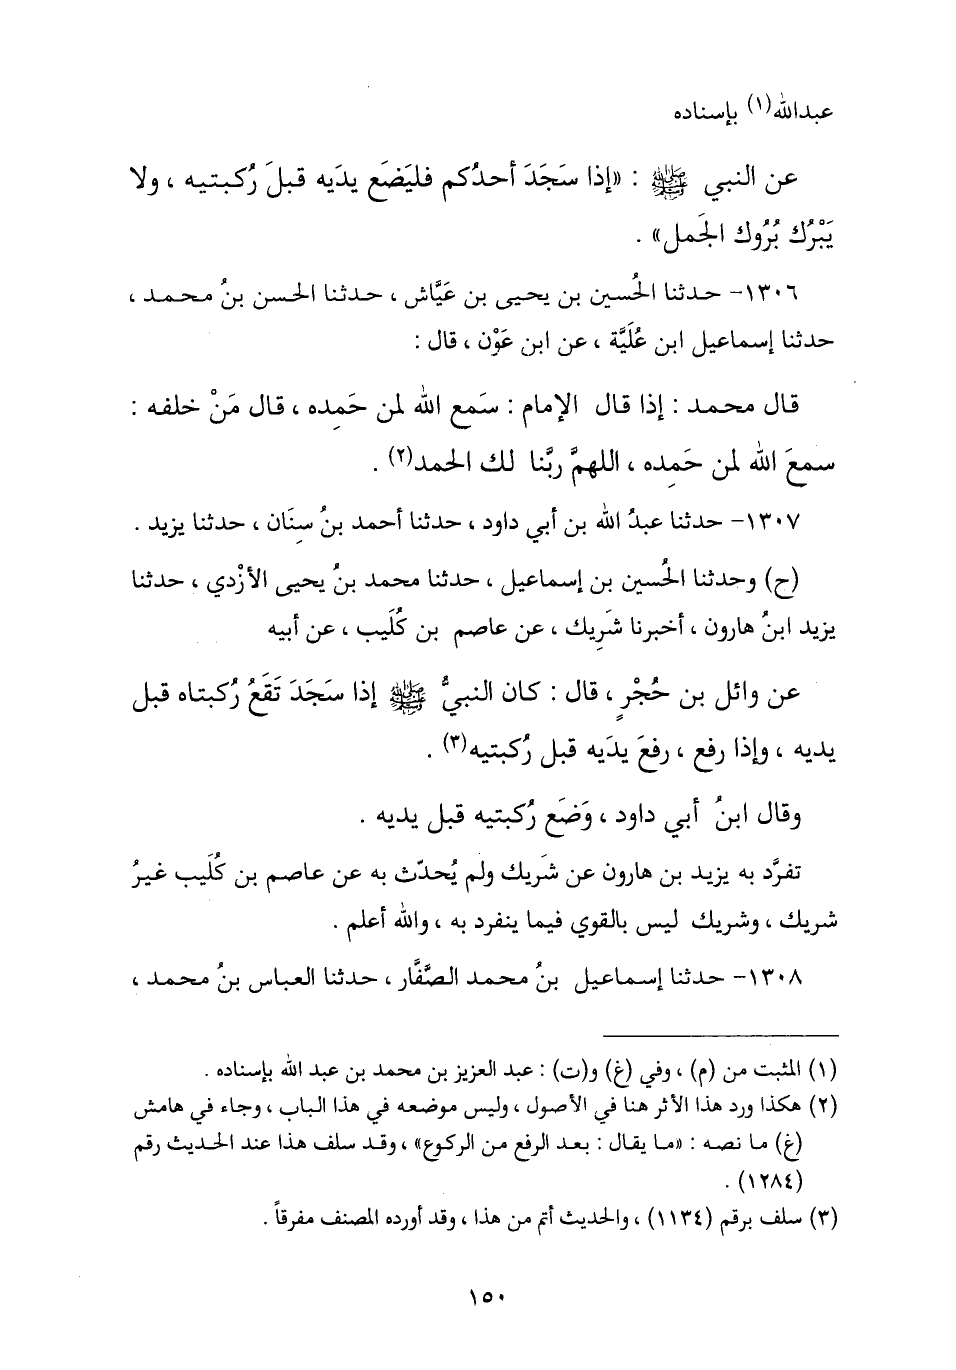 عبدالله(١) بإسناده
عن النبي ﷺ : «إذا سَجَدَ أحدُكم فليَضَع يدَيه قبلَ رُكبتيه ، ولا
يَبْرُك بُرُوك الجَمل» .
١٣٠٦- حدثنا الحُسين بن يحيى بن عَيَّاش ، حدثنا الحسن بنُ محمد ،
حدثنا إسماعيل ابن عُلَيَّة ، عن ابن عَوْن ، قال :
قال محمد : إذا قال الإمام : سَمع الله لمن حَمِده ، قال مَنْ خلفه :
سمعَ الله لمن حَمِده ، اللهمَّ ربَّنا لك الحمد(٢) .
١٣٠٧- حدثنا عبدُ الله بن أبي داود ، حدثنا أحمد بنُ سِنَان ، حدثنا يزيد .
(ح) وحدثنا الحُسين بن إسماعيل ، حدثنا محمد بنُ يحيى الأزْدي ، حدثنا
يزيد ابنُ هارون ، أخبرنا شَرِيك ، عن عاصم بن كُلَيب ، عن أبيه
عن وائل بن حُجْرٍ ، قال : كان النبيُّ ﷺ إذا سَجَدَ تَقَعُ رُكبتاه قبل
يديه ، وإذا رفع ، رفعَ يدَيه قبل رُكبتيه(٣) .
وقال ابنُ أبي داود ، وَضَع رُكبتيه قبل يديه .
تفرَّد به يزيد بن هارون عن شَريك ولم يُحدّث به عن عاصم بن كُلَيب غيرُ
شريك ، وشريك ليس بالقوي فيما ينفرد به ، والله أعلم .
١٣٠٨- حدثنا إسماعيل بنُ محمد الصَّفَّار ، حدثنا العباس بنُ محمد ،
(١) المثبت من (م) ، وفي (غ) و(ت) : عبد العزيز بن محمد بن عبد الله بإسناده .
(٢) هكذا ورد هذا الأثر هنا في الأصول ، وليس موضعه في هذا الباب ، وجاء في هامش
(غ) ما نصه : «ما يقال : بعد الرفع من الركوع» ، وقد سلف هذا عند الحديث رقم
(١٢٨٤) .
(٣) سلف برقم (١١٣٤) ، والحديث أتم من هذا ، وقد أورده المصنف مفرقاً .
١٥٠